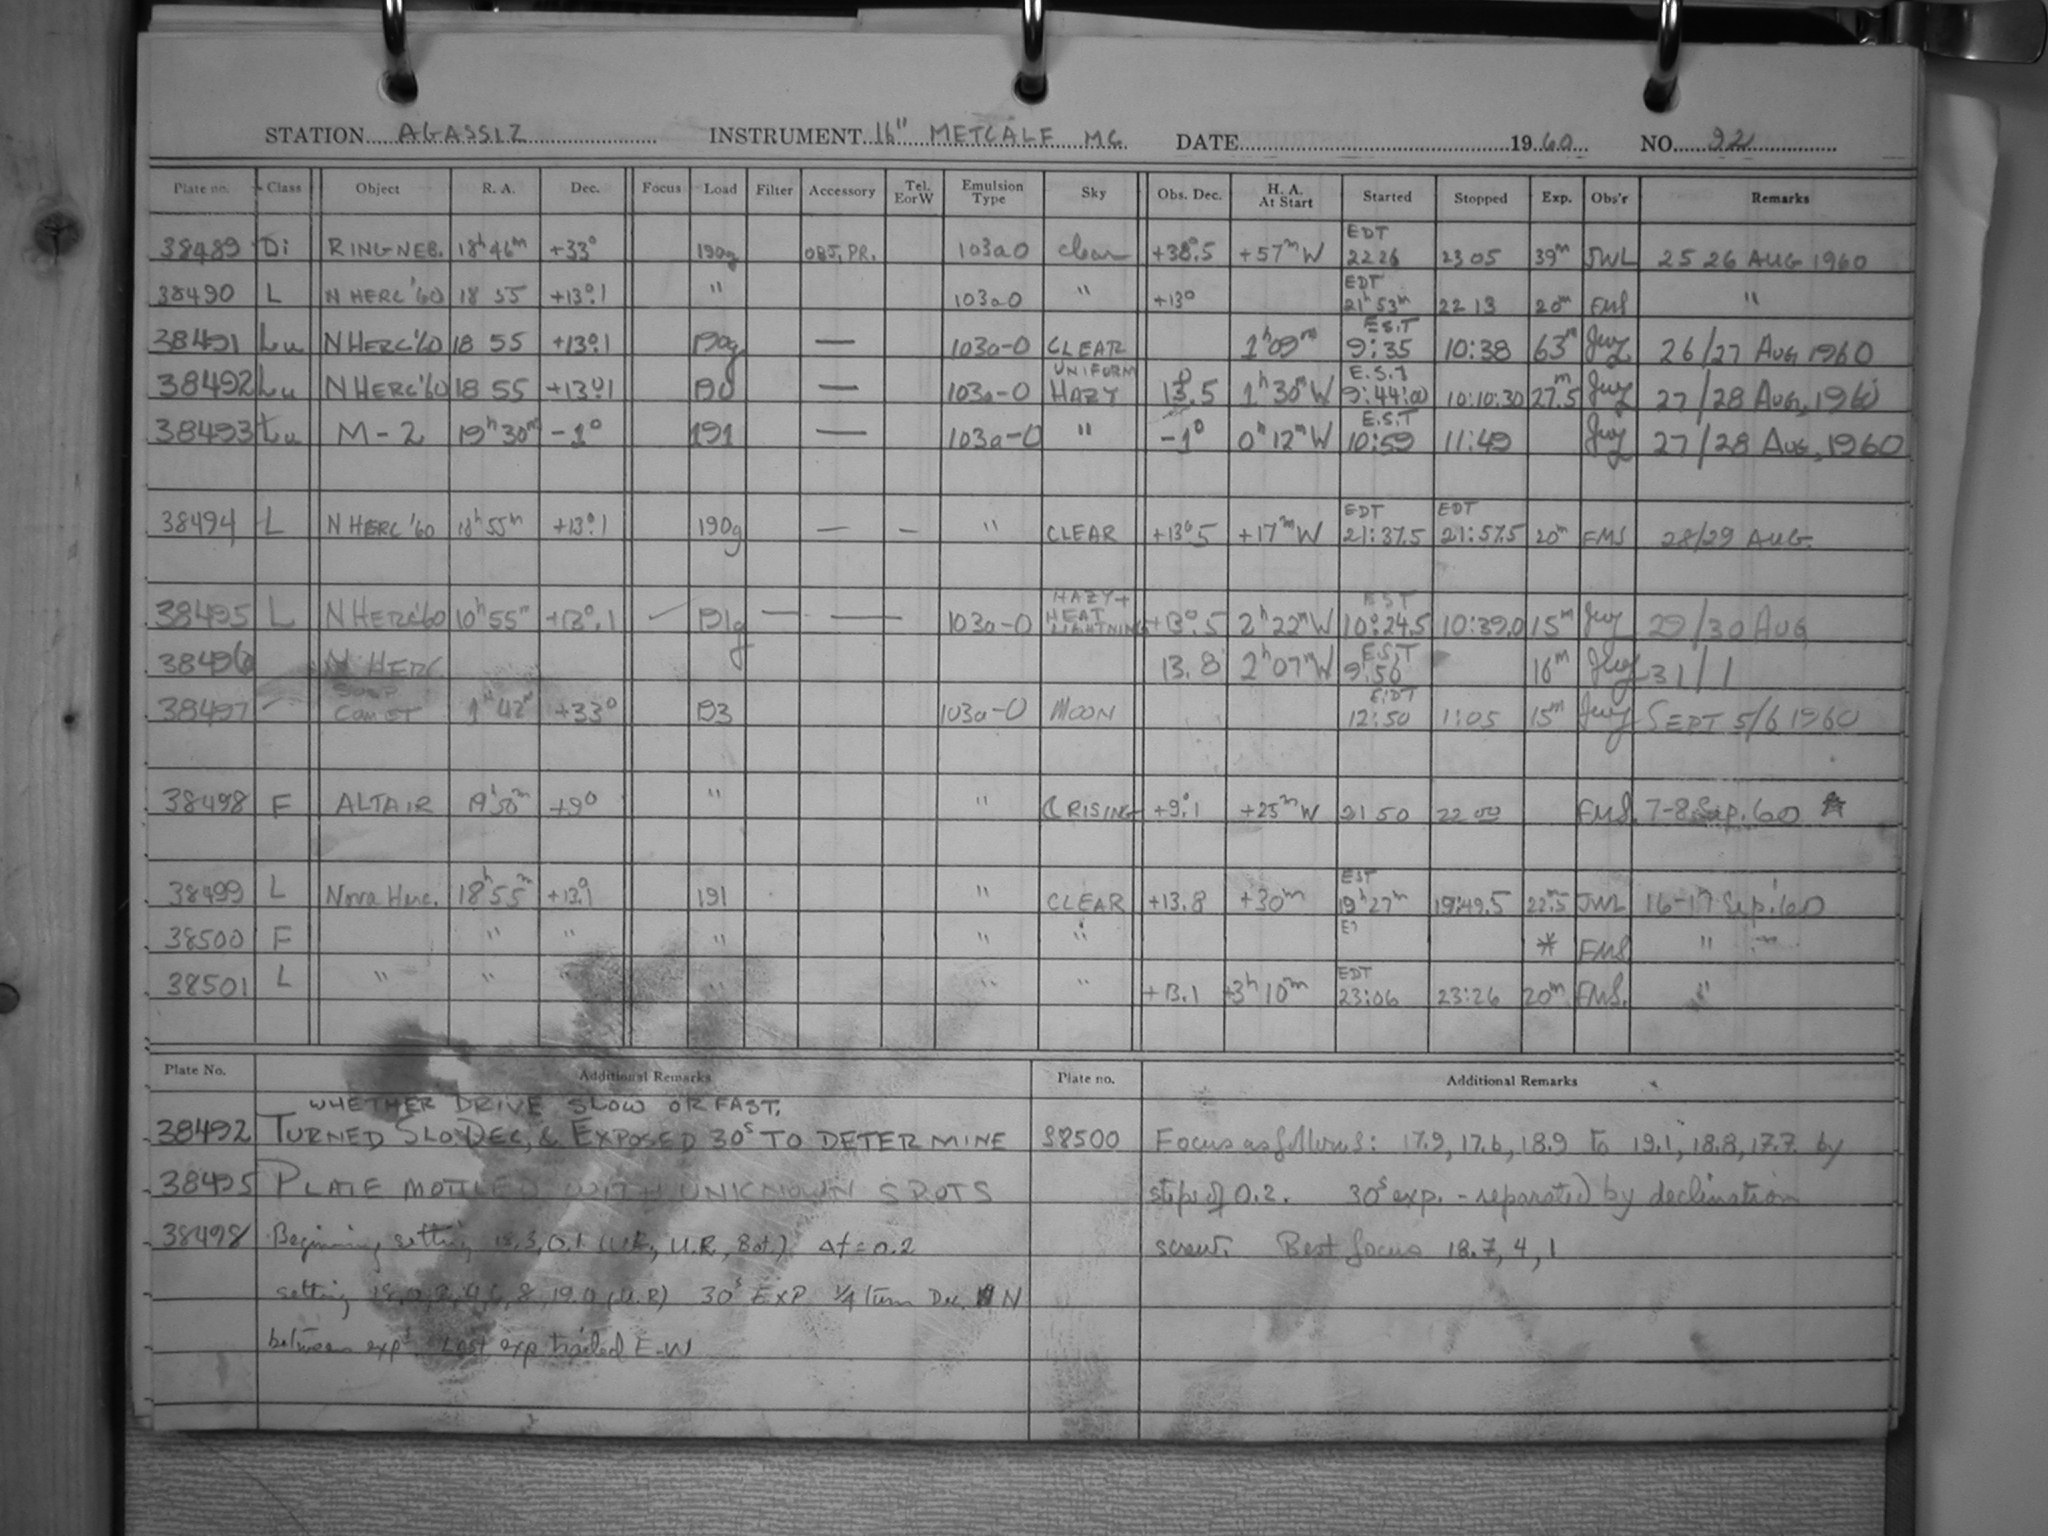 STATION AGASSIZ INSTRUMENT 16" METCALF MC DATE 1960 NO. 92
Plate no. Class Object R. A. Dec. Focus Load Filter Accessory Tel. E or W Emulsion Type Sky Obs. Dec. H. A. At Start Started Stopped Exp. Obs'r Remarks
38489 Di RING NEB. 18h 46m +33° 190g OBJ. PR. 103aO clear +38°.5 +57m W EDT 22 26 23 05 39m JWL 25 26 AUG 1960
38490 L N HERC '60 18 55 +13°.1 " 103aO " +13° EDT 21h 53m 22 13 20m EMS "
38491 Lu N HERC '60 18 55 +13°.1 190g — 103a-O CLEAR 1h 09m E.S.T 9:35 10:38 63m 26/27 AUG 1960
38492 Lu N HERC '60 18 55 +13°.1 190 — 103a-O UNIFORM HAZY 13°.5 1h 30m W E.S.T 9:44:00 10:10:30 27.5m 27/28 AUG, 1960
38493 Lu M-2 19h 30m -1° 191 — 103a-O " -1° 0h 12m W E.S.T 10:59 11:49 27/28 AUG, 1960
38494 L N HERC '60 18h 55m +13°.1 190g — — " CLEAR +13°.5 +17m W EDT 21:37.5 EDT 21:57.5 20m EMS 28/29 AUG.
38495 L N HERC '60 10h 55m +13°.1 191g — — 103a-O HAZY + HEAT LIGHTNING +13°.5 2h 22m W EST 10:24.5 10:39.0 15m 29/30 AUG
38496 N HERC. 13.8 2h 07m W E.S.T 9:56 16m 31/1
38497 COMET 1h 42m +33° 193 103a-O MOON E.D.T 12:50 1:05 15m SEPT 5/6 1960
38498 F ALTAIR 19h 50m +9° " " ☾ RISING +9°.1 +25m W 21 50 22 00 EMS. 7-8 Sep. 60
38499 L Nova Herc. 18h 55m +13°.1 191 " CLEAR +13.8 +30m EST 19h 27m 19:49.5 22m.5 JWL 16-17 Sep. '60
38500 F " " " " " * EMS "
38501 L " " " " " +13.1 +3h 10m EDT 23:06 23:26 20m EMS. "
Plate No. Additional Remarks Plate no. Additional Remarks
WHETHER DRIVE SLOW OR FAST.
38492 TURNED SLO DEC, & EXPOSED 30s TO DETERMINE
38495 PLATE MOTTLED WITH UNKNOWN SPOTS
38498 Beginning setting Δf = 0.2
setting 19.0 (U.R) 30s EXP 1/4 turn Dec. N
between exps. Last exp trailed E-W
38500 Focus as follows: 17.9, 17.6, 18.9 to 19.1, 18.8, 17.7. by
steps of 0.2. 30s exp. - separated by declination
screw. Best focus 18.7, 4, 1